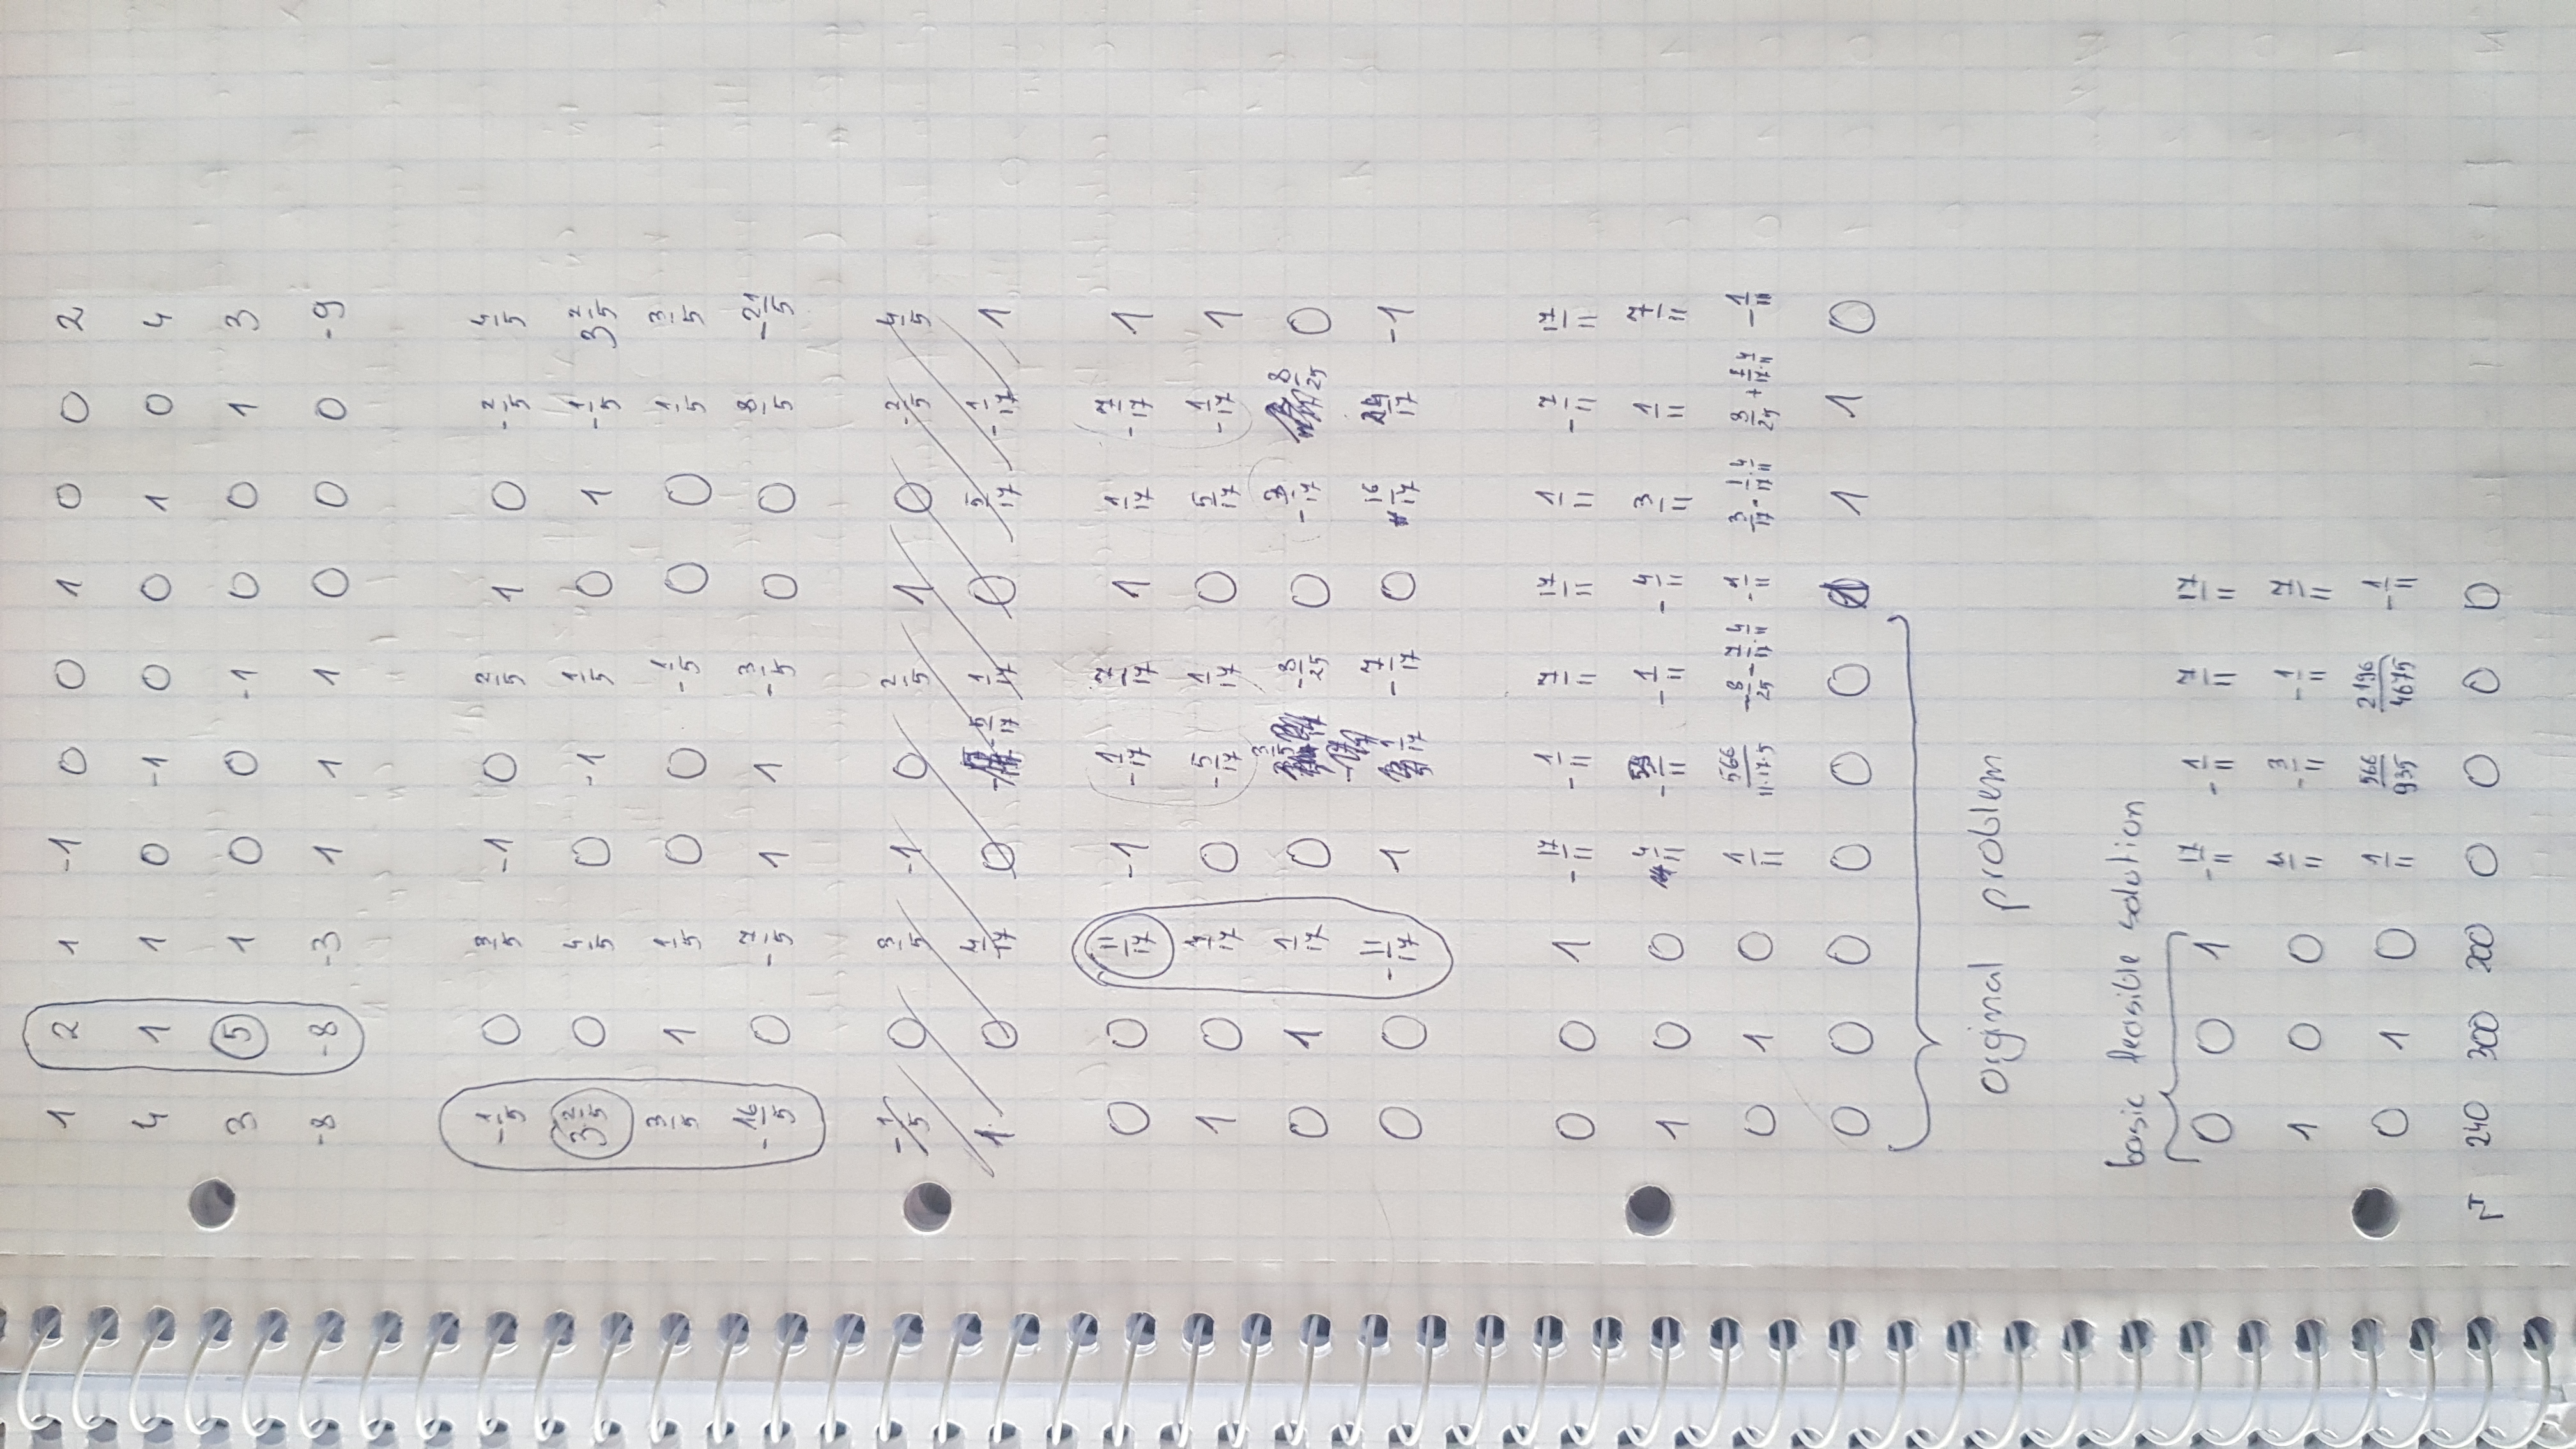 1 2 1 -1 0 0 1 0 0 2
4 1 1 0 -1 0 0 1 0 4
3 5 1 0 0 -1 0 0 1 3
-8 -8 -3 1 1 1 0 0 0 -9
-1/5 0 3/5 -1 0 2/5 1 0 -2/5 4/5
3 2/5 0 4/5 0 -1 1/5 0 1 -1/5 3 2/5
3/5 1 1/5 0 0 -1/5 0 0 1/5 3/5
-16/5 0 -7/5 1 1 -3/5 0 0 8/5 -21/5
-1/5 0 3/5 -1 0 2/5 1 0 -2/5 4/5
1 0 4/17 0 -5/17 1/17 0 5/17 -1/17 1
0 0 11/17 -1 -1/17 7/17 1 1/17 -7/17 1
1 0 4/17 0 -5/17 1/17 0 5/17 -1/17 1
0 1 1/17 0 3/5 -8/25 0 -3/17 8/25 0
0 0 -11/17 1 1/17 -7/17 0 16/17 24/17 -1
0 0 1 -17/11 -1/11 7/11 17/11 1/11 -7/11 17/11
1 0 0 4/11 -3/11 -1/11 -4/11 3/11 1/11 7/11
0 1 0 1/11 566/11·17·5 -8/25-7/17·4/11 -1/11 3/17-1/17·4/11 8/25+7/17·4/11 -1/11
0 0 0 0 0 0 1 1 1 0
orginal problem
basic feasible solution
0 0 1 -17/11 -1/11 7/11 17/11
1 0 0 4/11 -3/11 -1/11 7/11
0 1 0 1/11 566/935 2196/4675 -1/11
240 300 200 0 0 0 0